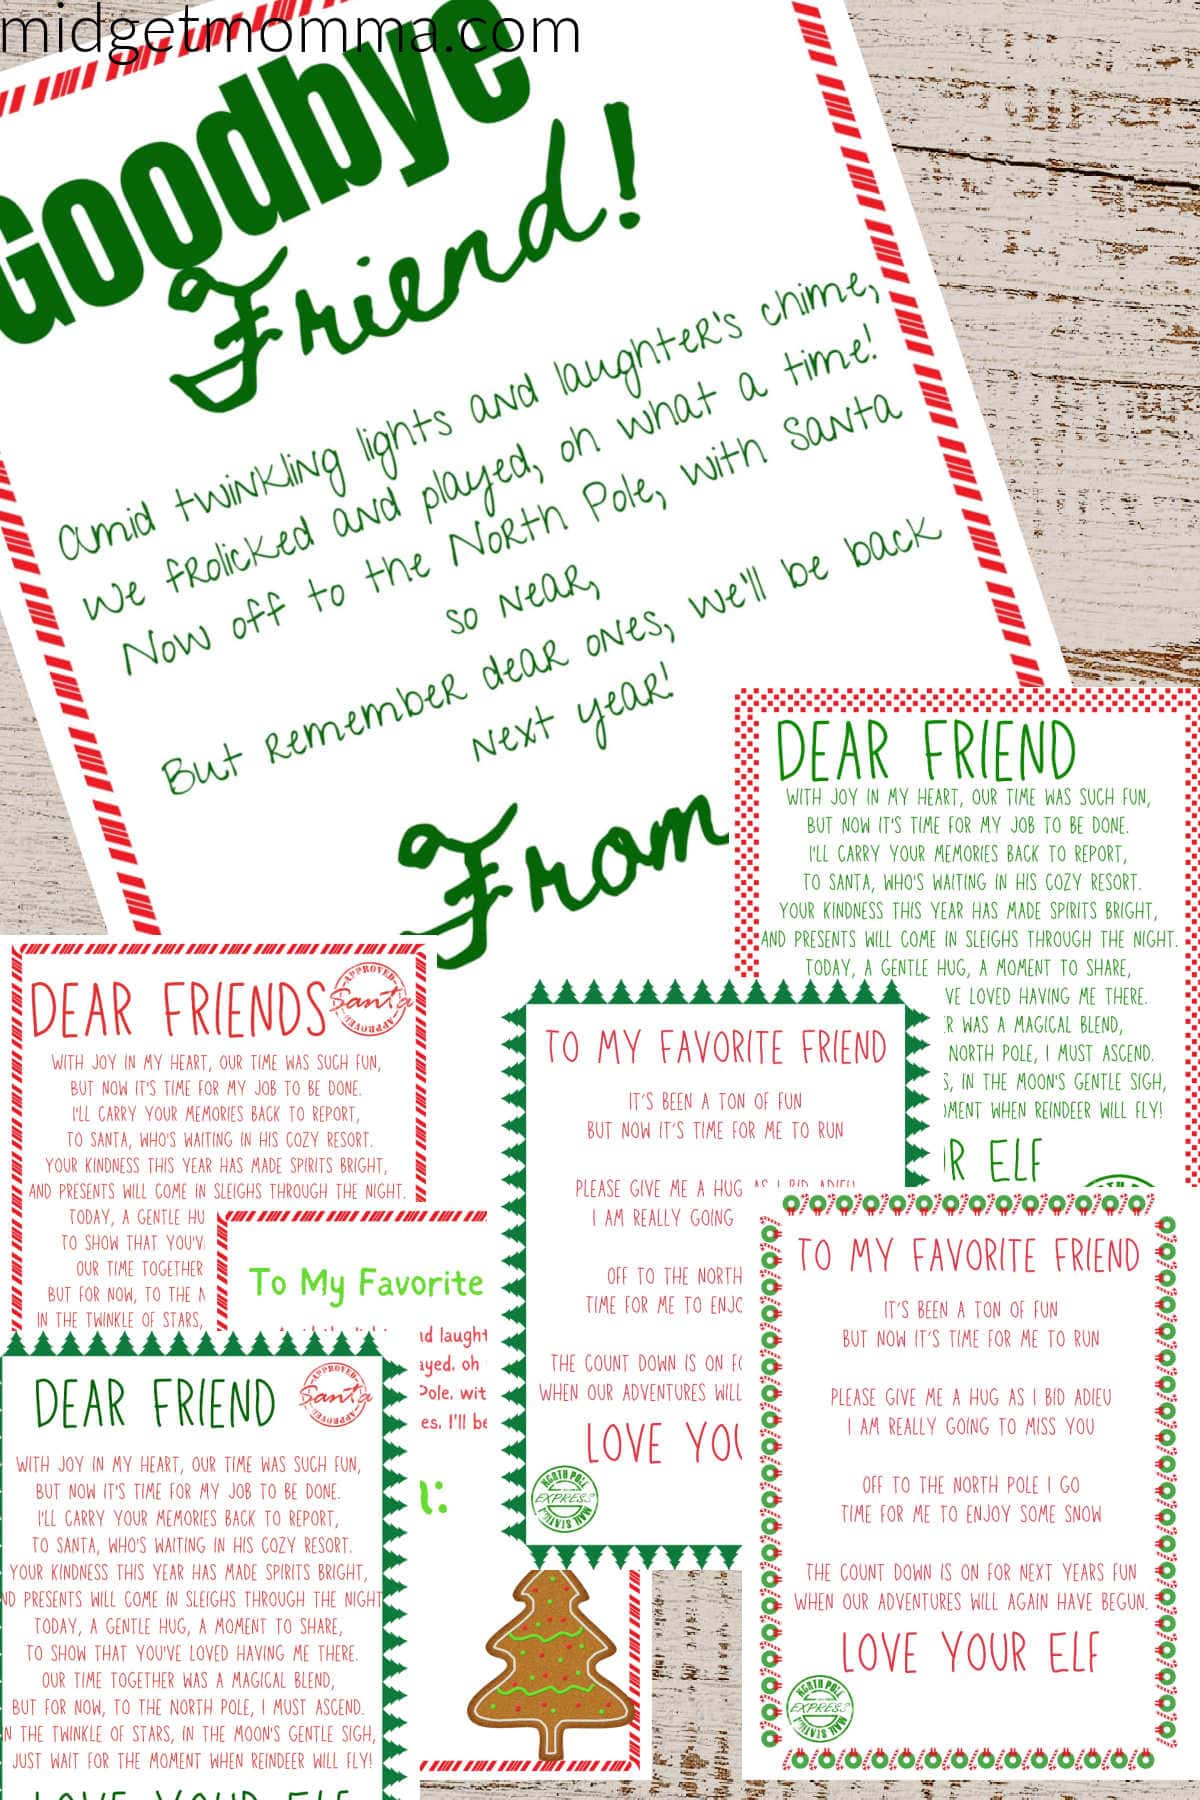 midgetmomma.com
Goodbye
Friend!
Amid twinkling lights and laughter's chime,
We frolicked and played, oh what a time!
Now off to the North Pole, with Santa
so near,
But remember dear ones, we'll be back
next year!
From
DEAR FRIEND
WITH JOY IN MY HEART, OUR TIME WAS SUCH FUN,
BUT NOW IT'S TIME FOR MY JOB TO BE DONE.
I'LL CARRY YOUR MEMORIES BACK TO REPORT,
TO SANTA, WHO'S WAITING IN HIS COZY RESORT.
YOUR KINDNESS THIS YEAR HAS MADE SPIRITS BRIGHT,
AND PRESENTS WILL COME IN SLEIGHS THROUGH THE NIGHT.
TODAY, A GENTLE HUG, A MOMENT TO SHARE,
VE LOVED HAVING ME THERE.
R WAS A MAGICAL BLEND,
NORTH POLE, I MUST ASCEND.
S, IN THE MOON'S GENTLE SIGH,
MENT WHEN REINDEER WILL FLY!
R ELF
DEAR FRIENDS
APPROVED
Santa
APPROVED
WITH JOY IN MY HEART, OUR TIME WAS SUCH FUN,
BUT NOW IT'S TIME FOR MY JOB TO BE DONE.
I'LL CARRY YOUR MEMORIES BACK TO REPORT,
TO SANTA, WHO'S WAITING IN HIS COZY RESORT.
YOUR KINDNESS THIS YEAR HAS MADE SPIRITS BRIGHT,
AND PRESENTS WILL COME IN SLEIGHS THROUGH THE NIGHT.
TODAY, A GENTLE HU
TO SHOW THAT YOU'V
OUR TIME TOGETHER
BUT FOR NOW, TO THE N
IN THE TWINKLE OF STARS,
To My Favorite
nd laught
ayed, oh
Pole, wit
es, I'll be
TO MY FAVORITE FRIEND
IT'S BEEN A TON OF FUN
BUT NOW IT'S TIME FOR ME TO RUN
PLEASE GIVE ME A HUG AS I BID ADIEU
I AM REALLY GOING
OFF TO THE NORTH
TIME FOR ME TO ENJO
THE COUNT DOWN IS ON FO
WHEN OUR ADVENTURES WILL
LOVE YOU
NORTH POLE
EXPRESS
MAIL STATION
DEAR FRIEND
APPROVED
Santa
APPROVED
WITH JOY IN MY HEART, OUR TIME WAS SUCH FUN,
BUT NOW IT'S TIME FOR MY JOB TO BE DONE.
I'LL CARRY YOUR MEMORIES BACK TO REPORT,
TO SANTA, WHO'S WAITING IN HIS COZY RESORT.
YOUR KINDNESS THIS YEAR HAS MADE SPIRITS BRIGHT,
ND PRESENTS WILL COME IN SLEIGHS THROUGH THE NIGHT
TODAY, A GENTLE HUG, A MOMENT TO SHARE,
TO SHOW THAT YOU'VE LOVED HAVING ME THERE.
OUR TIME TOGETHER WAS A MAGICAL BLEND,
BUT FOR NOW, TO THE NORTH POLE, I MUST ASCEND.
N THE TWINKLE OF STARS, IN THE MOON'S GENTLE SIGH,
JUST WAIT FOR THE MOMENT WHEN REINDEER WILL FLY!
LOVE YOUR ELF
TO MY FAVORITE FRIEND
IT'S BEEN A TON OF FUN
BUT NOW IT'S TIME FOR ME TO RUN
PLEASE GIVE ME A HUG AS I BID ADIEU
I AM REALLY GOING TO MISS YOU
OFF TO THE NORTH POLE I GO
TIME FOR ME TO ENJOY SOME SNOW
THE COUNT DOWN IS ON FOR NEXT YEARS FUN
WHEN OUR ADVENTURES WILL AGAIN HAVE BEGUN.
LOVE YOUR ELF
NORTH POLE
EXPRESS
MAIL STATION